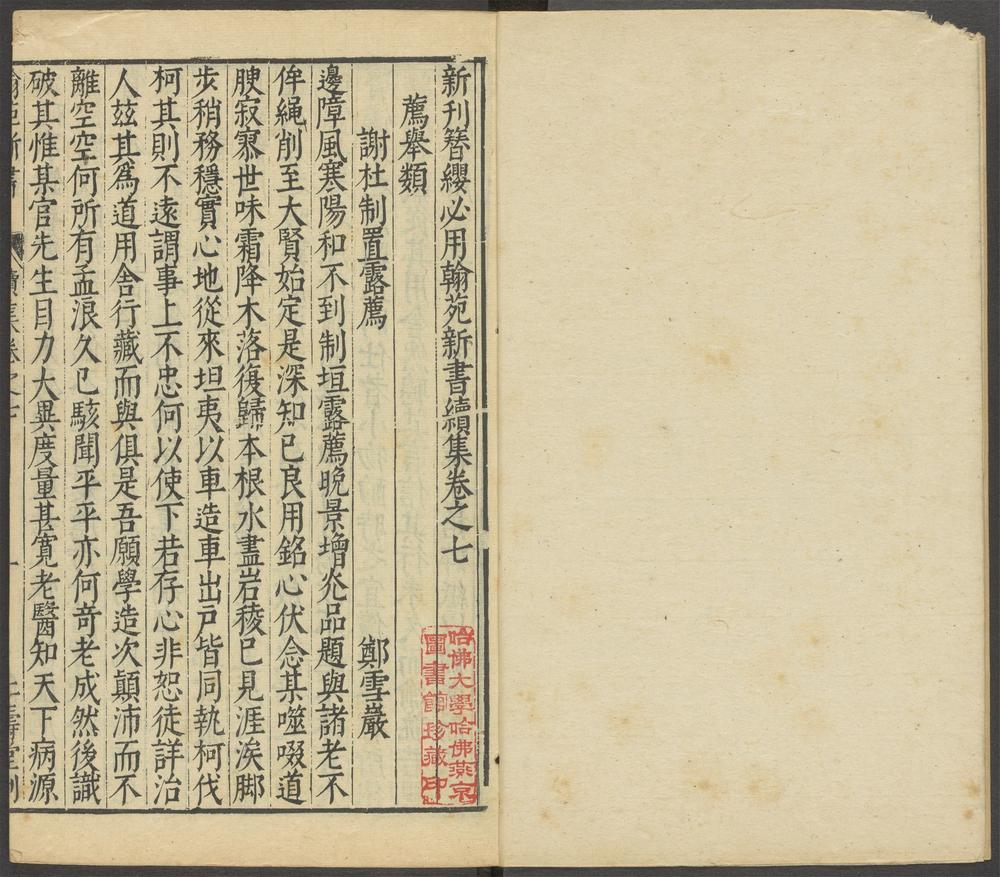 新刊簪纓必用翰苑新書續集卷之七
薦舉類
謝杜制置露薦
鄭雪巖
邊障風寒陽和不到制垣露薦晚景增光品題與諸老不
侔繩削至大賢始定是深知已良用銘心伏念某噬啜道
腴寂寥世味霜降木落復歸本根水盡岩稜已見涯涘脚
步稍務穩實心地從來坦夷以車造車出戶皆同執柯伐
柯其則不遠謂事上不忠何以使下若存心非恕徒詳治
人茲其為道用舍行藏而與俱是吾願學造次顛沛而不
離空空何所有孟浪久已駭聞平平亦何奇老成然後識
破其惟某官先生目力大異度量甚寬老醫知天下病源
翰苑新書
續集卷之七
一
仁壽堂刊
哈佛大學哈佛燕京
圖書館珍藏印